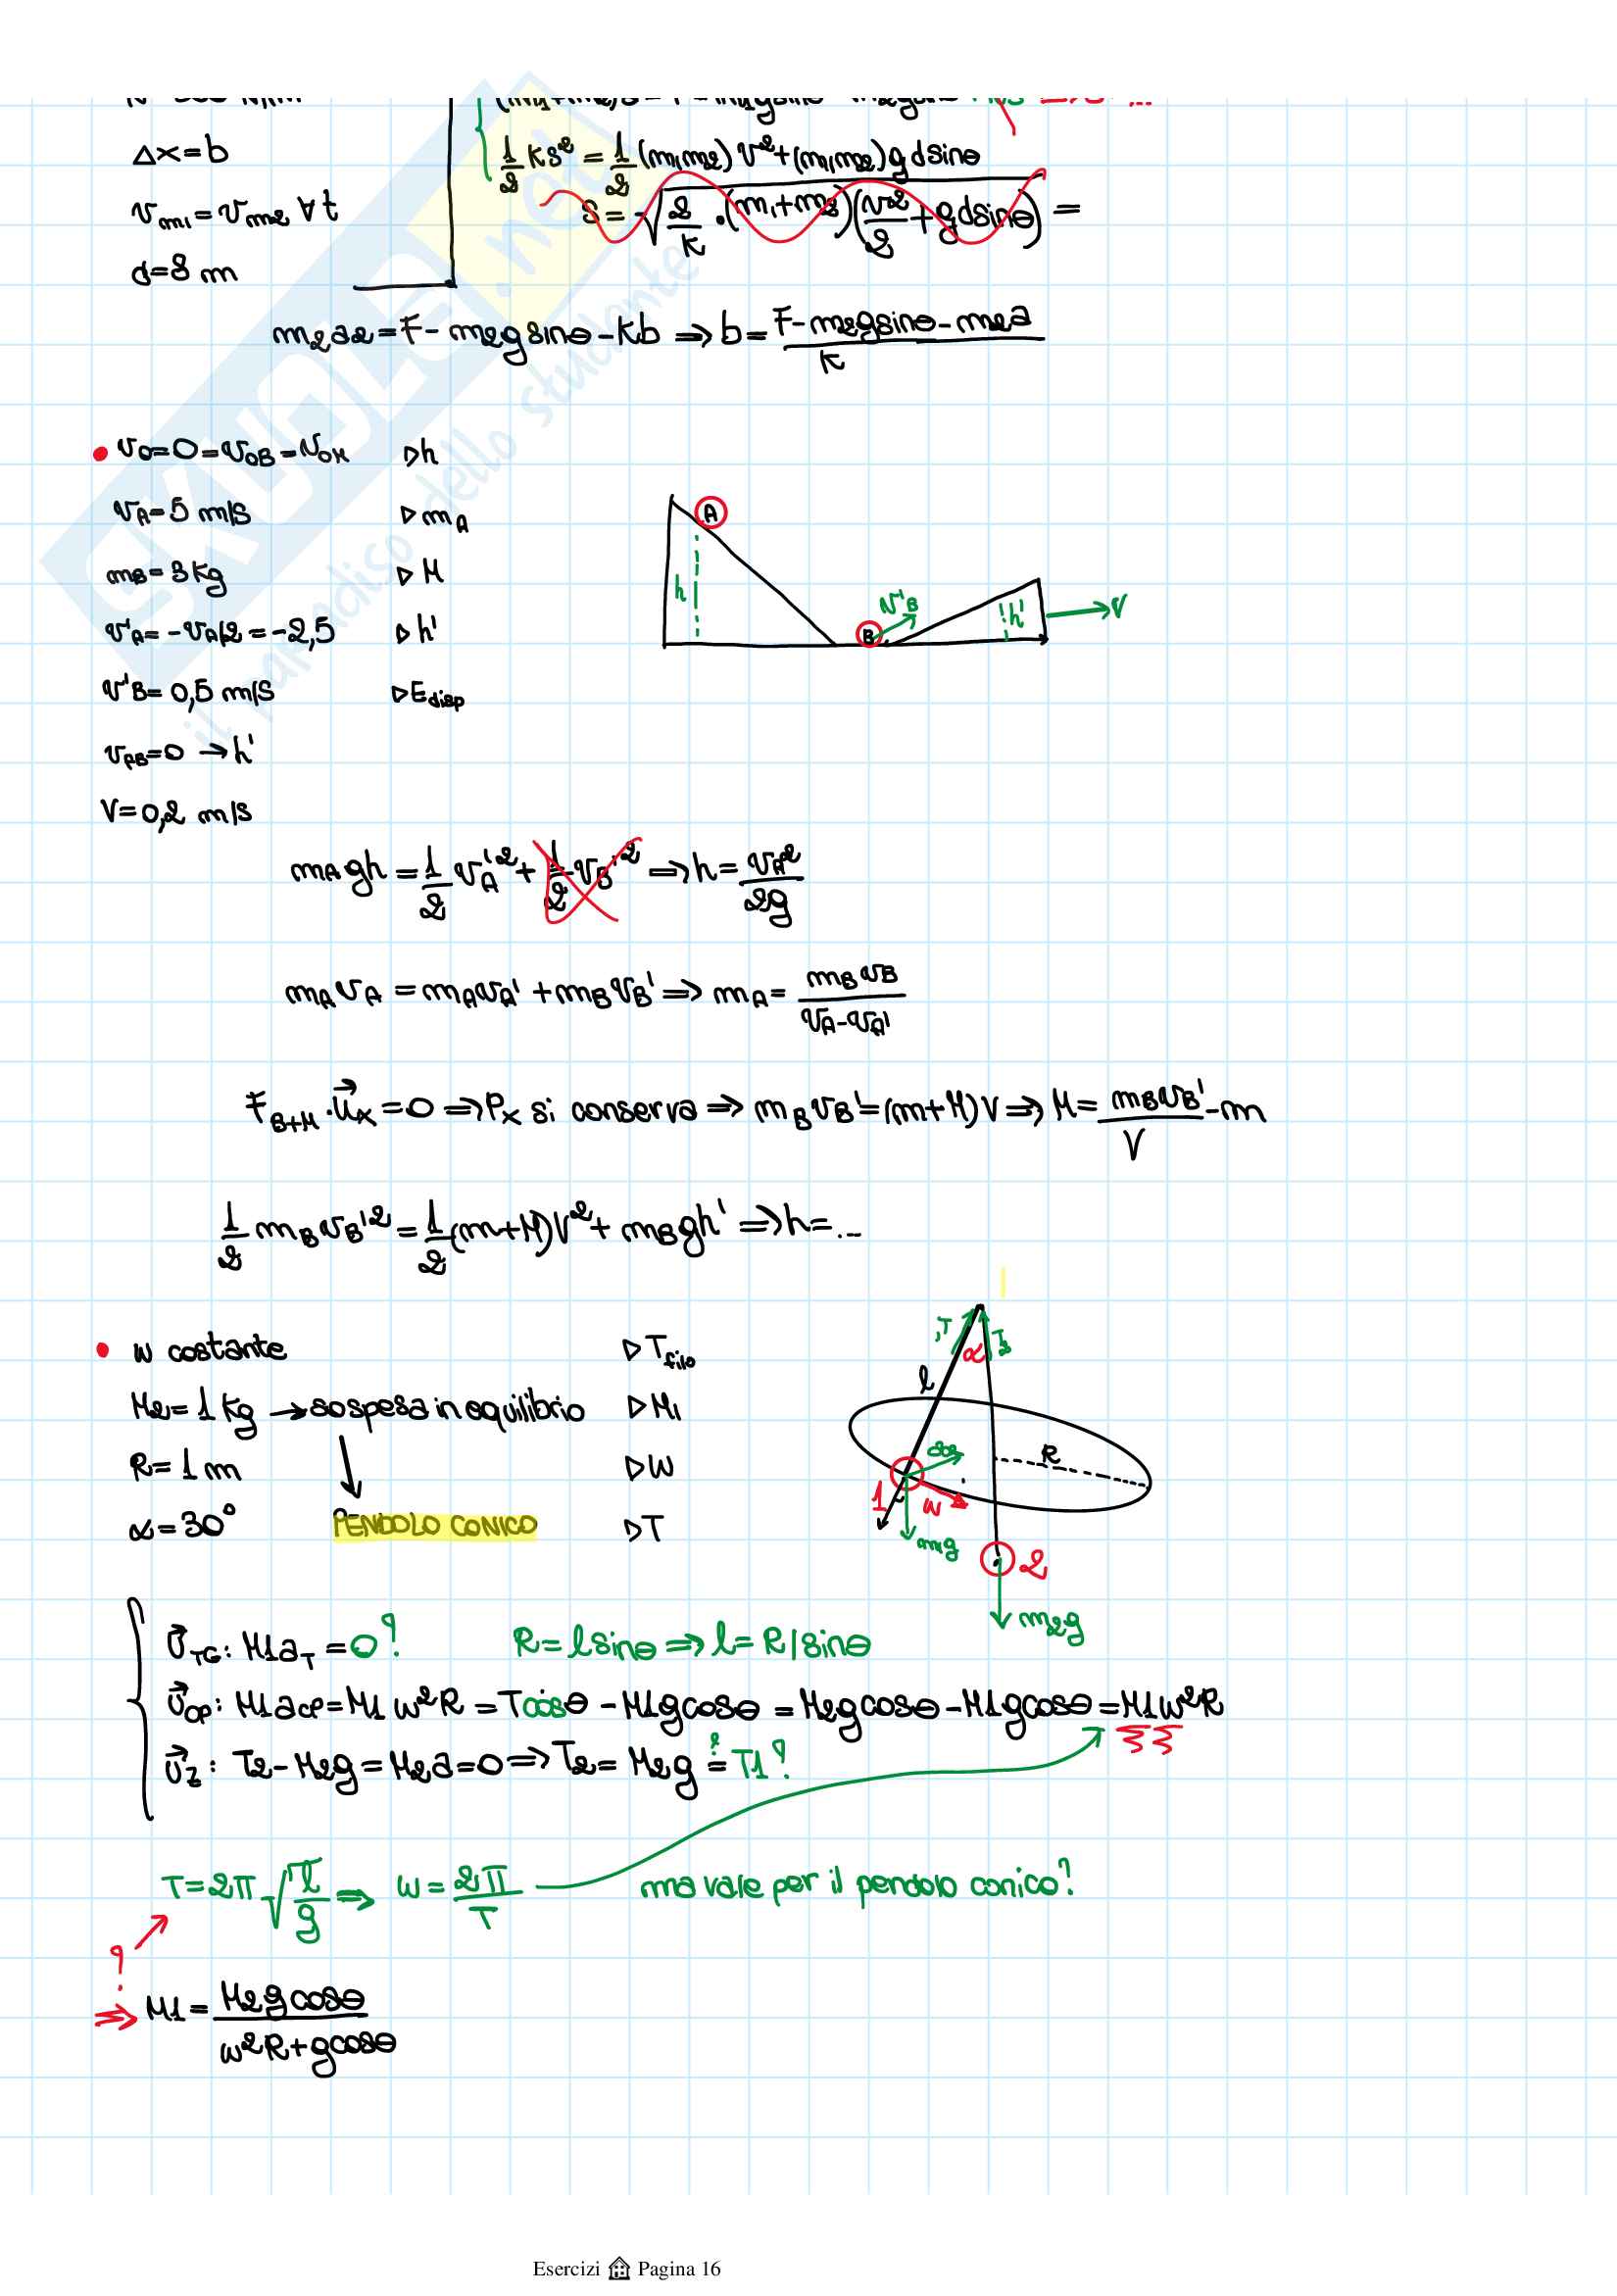 Δx=b
v_m1=v_m2 ∀t
d=8 m
1/2 Ks²=1/2(m1m2)v²+(m1m2)gdsinθ
S=√(2/K·(m1+m2)(v²/2+gdsinθ))=
m2a2=F-m2gsinθ-Kb⇒b=(F-m2gsinθ-m2a)/K
• v0=0=v0B=v0M ▷h
vA=5 m/s ▷mA
mB=3Kg ▷M
v'A=-vA/2=-2,5 ▷h'
v'B=0,5 m/s ▷Edisp
vfB=0→h'
V=0,2 m/s
A
h
B
v'B
h'
V
mAgh=1/2 vA'²+1/2 vB'²⇒h=vA²/2g
mAvA=mAvA'+mBvB'⇒mA=mBvB/(vA-vA')
F_B+M·u⃗x=0⇒Px si conserva⇒mBvB'=(m+M)V⇒M=mBvB'/V-m
1/2 mBvB'²=1/2(m+M)V²+mBgh'⇒h=...
• w costante ▷Tfilo
M2=1Kg→sospesa in equilibrio ▷M1
R=1m ▷w
α=30° PENDOLO CONICO ▷T
α
l
R
1
w
m1g
2
m2g
u⃗TG: M1aT=0? R=lsinθ⇒l=R/sinθ
u⃗cp: M1acp=M1w²R=Tcosθ-M1gcosθ=M2gcosθ-M1gcosθ=M1w²R
u⃗z: T2-M2g=M2a=0⇒T2=M2g=T1?
T=2π√(l/g)⇒w=2π/T ma vale per il pendolo conico?
?
⇒M1=M2gcosθ/(w²R+gcosθ)
Esercizi Pagina 16
SKUOLA.net
il paradiso dello studente